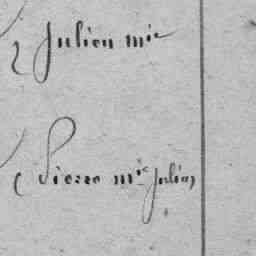 Julien mic
Pierre mic Julien